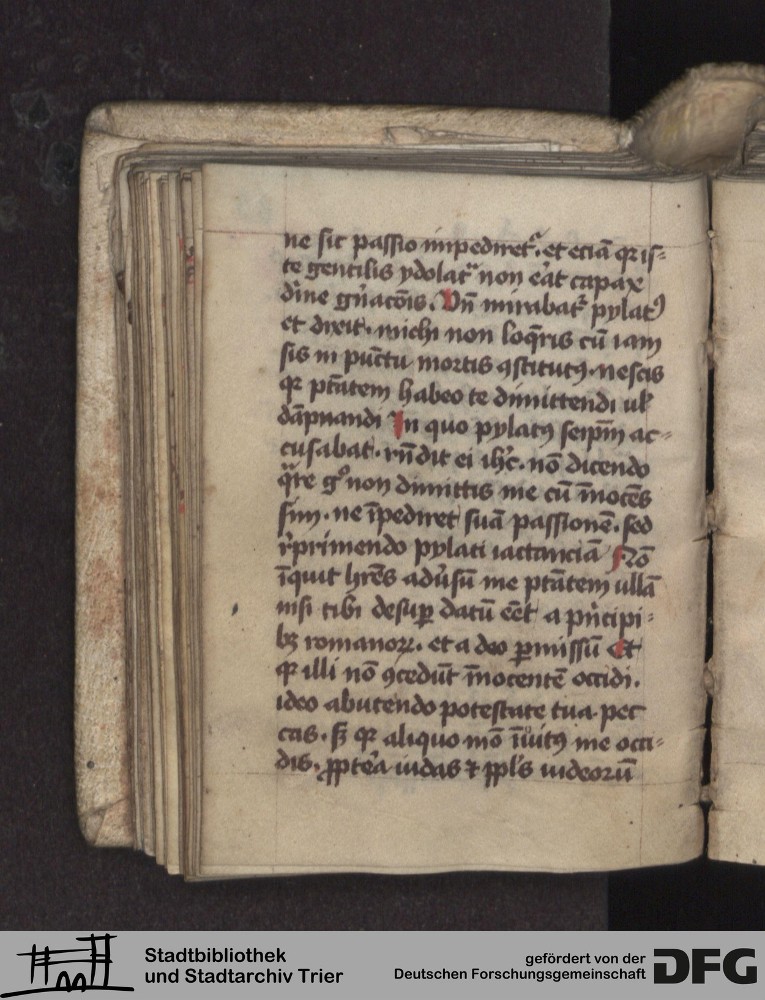 ne sic passio impediret᷑. et eciā qr is⸗
te gentilis ydolatͣ non eͣt capax
diͥne gn̄acōis. Vn̄ mirabat᷑ pylatꝰ
et dixit. michi non loqͥris cū iam
sis in punctu mortis ꝯstitutꝰ. nescis
qr ptātem habeo te dimittendi ul̓
dāpnandi In quo pylatꝰ seip̄m ac⸗
cusabat. rn̄dit ei ih̓c. nō dicendo
qͣre gͦ non dimittis me cū īnocēs
sim. ne īpediret suā passionē. sed
r̓primendo pylati iactanciā Nō
īquit hr̄es adūsū me ptātem ullā
nisi tibi desuꝑ datū eēt a pͥncipi⸗
bꝫ romanoꝝ. et a deo ꝑmissū Et
qr illi nō ꝯcedūt īnocentē occidi.
ideo abutendo potestate tua. pec
cas. sꝫ qr aliquo mō īuitꝰ me occi⸗
dis. ꝓptēa iudas ⁊ ppl̓s iudeorū
Stadtbibliothek
und Stadtarchiv Trier
gefördert von der
Deutschen Forschungsgemeinschaft
DFG